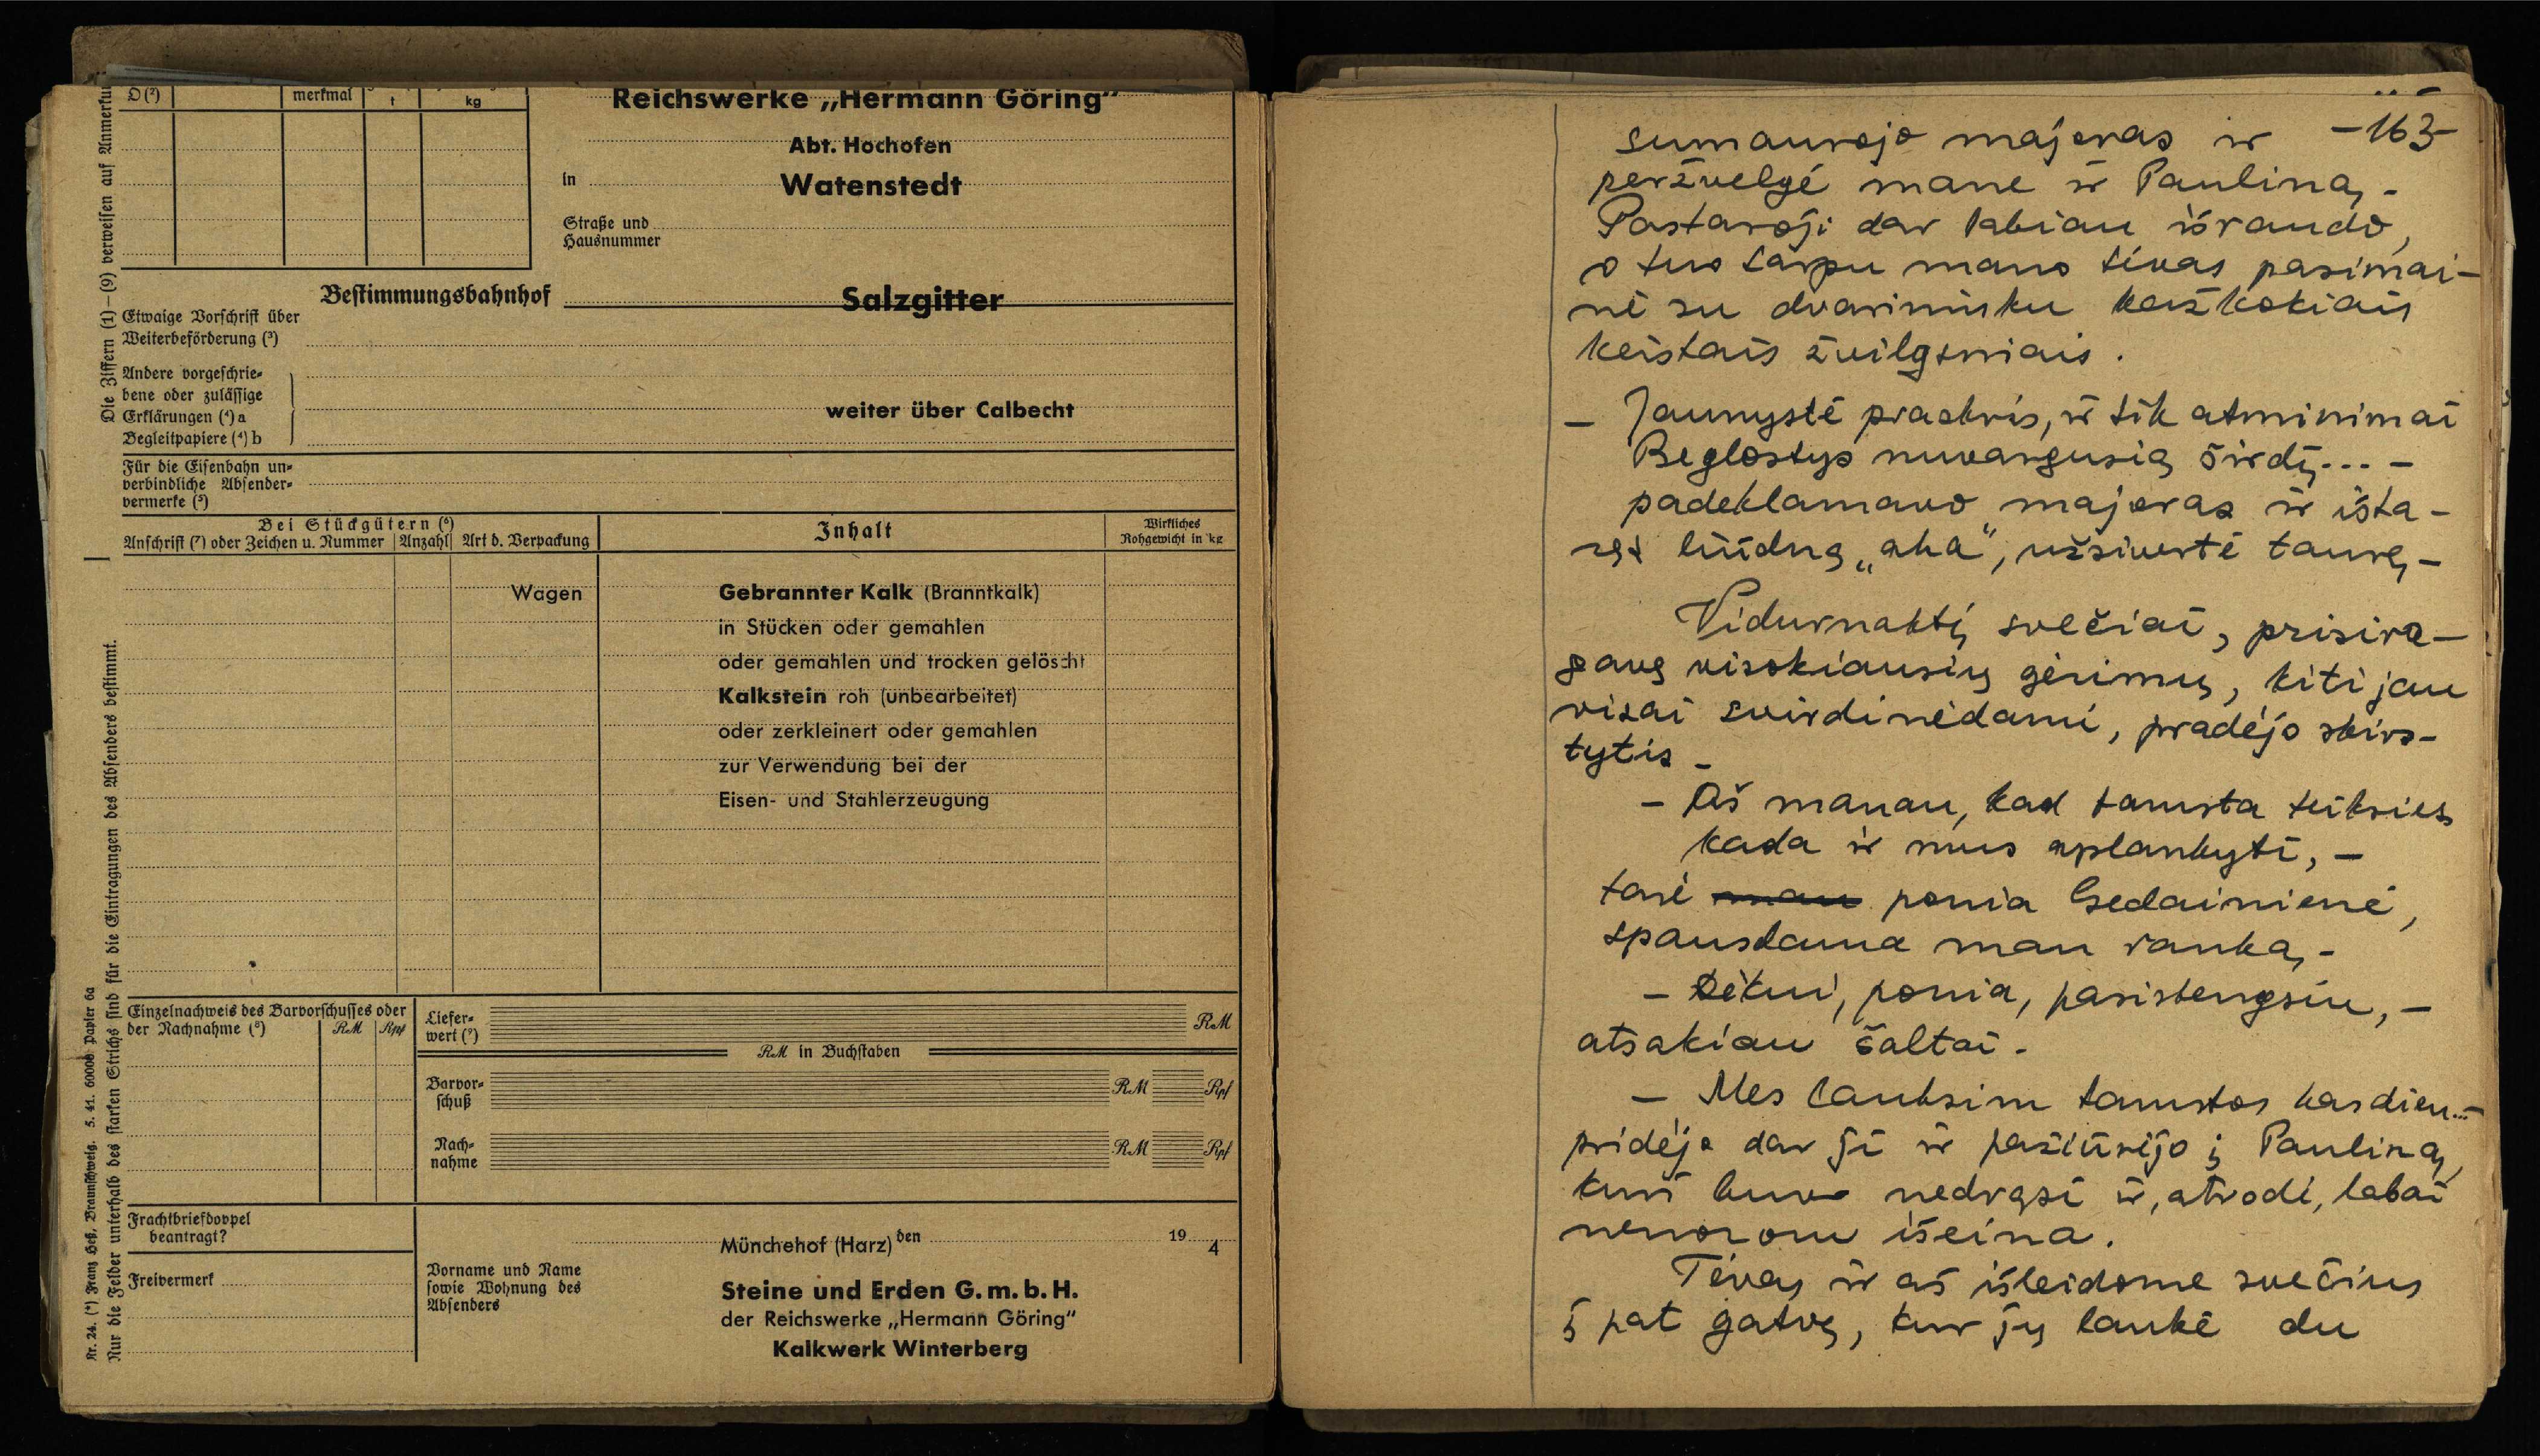 D(²) merkmal t kg
Reichswerke „Hermann Göring“
Abt. Hochofen
in Watenstedt
Straße und
Hausnummer
Bestimmungsbahnhof Salzgitter
Etwaige Vorschrift über
Weiterbeförderung (³)
Andere vorgeschrie-
bene oder zulässige
Erklärungen (⁴) a
Begleitpapiere (⁴) b
weiter über Calbecht
Für die Eisenbahn un-
verbindliche Absender-
vermerke (⁵)
Bei Stückgütern (⁶)
Anschrift (⁷) oder Zeichen u. Nummer Anzahl Art d. Verpackung
Inhalt
Wirkliches
Rohgewicht in kg
Wagen Gebrannter Kalk (Branntkalk)
in Stücken oder gemahlen
oder gemahlen und trocken gelöscht
Kalkstein roh (unbearbeitet)
oder zerkleinert oder gemahlen
zur Verwendung bei der
Eisen- und Stahlerzeugung
Einzelnachweis des Barvorschusses oder
der Nachnahme (⁸) RM Rpf
Liefer-
wert (⁹) RM
RM in Buchstaben
Barvor-
schuß RM Rpf
Nach-
nahme RM Rpf
Frachtbriefdoppel
beantragt?
Freivermerk
Münchehof (Harz) den 19 4
Vorname und Name
sowie Wohnung des
Absenders
Steine und Erden G.m.b.H.
der Reichswerke „Hermann Göring“
Kalkwerk Winterberg
Die Ziffern (1)–(9) verweisen auf
Nur die Felder unterhalb des starken Strichs sind für die Eintragungen des Absenders bestimmt.
Kr. 24. (*) Franz Heß, Braunschweig. 5. 41. 60000. Papier 6a
-163-
sumaurojo majoras ir
peržvelgė mane ir Pauliną.
Pastaroji dar labiau išraudo,
o tuo tarpu mano tėvas pasimai-
nė su dvarininku kažkokiais
keistais žvilgsniais.
– Jaunystė praskris, ir tik atminimai
Beglostys nuvargusią širdį... –
padeklamavo majoras ir išta-
ręs liūdną „aha“, užsivertė taurę –
Vidurnaktį svečiai, prisira-
gavę visokiausių gėrimų, kiti jau
visai svirdinėdami, pradėjo skirs-
tytis –
– Aš manau, kad tamsta teiksies
kada ir mus aplankyti, –
tarė man ponia Gedainienė,
spausdama man ranką. –
– Dėkui, ponia, pasistengsiu, –
atsakiau šaltai.
– Mes lauksim tamstos kasdien... –
pridėjo dar ji ir pažiūrėjo į Pauliną,
kuri buvo nedrąsi ir, atrodė, labai
nenorom išeina.
Tėvas ir aš išleidome svečius
į pat gatvę, kur jų laukė du